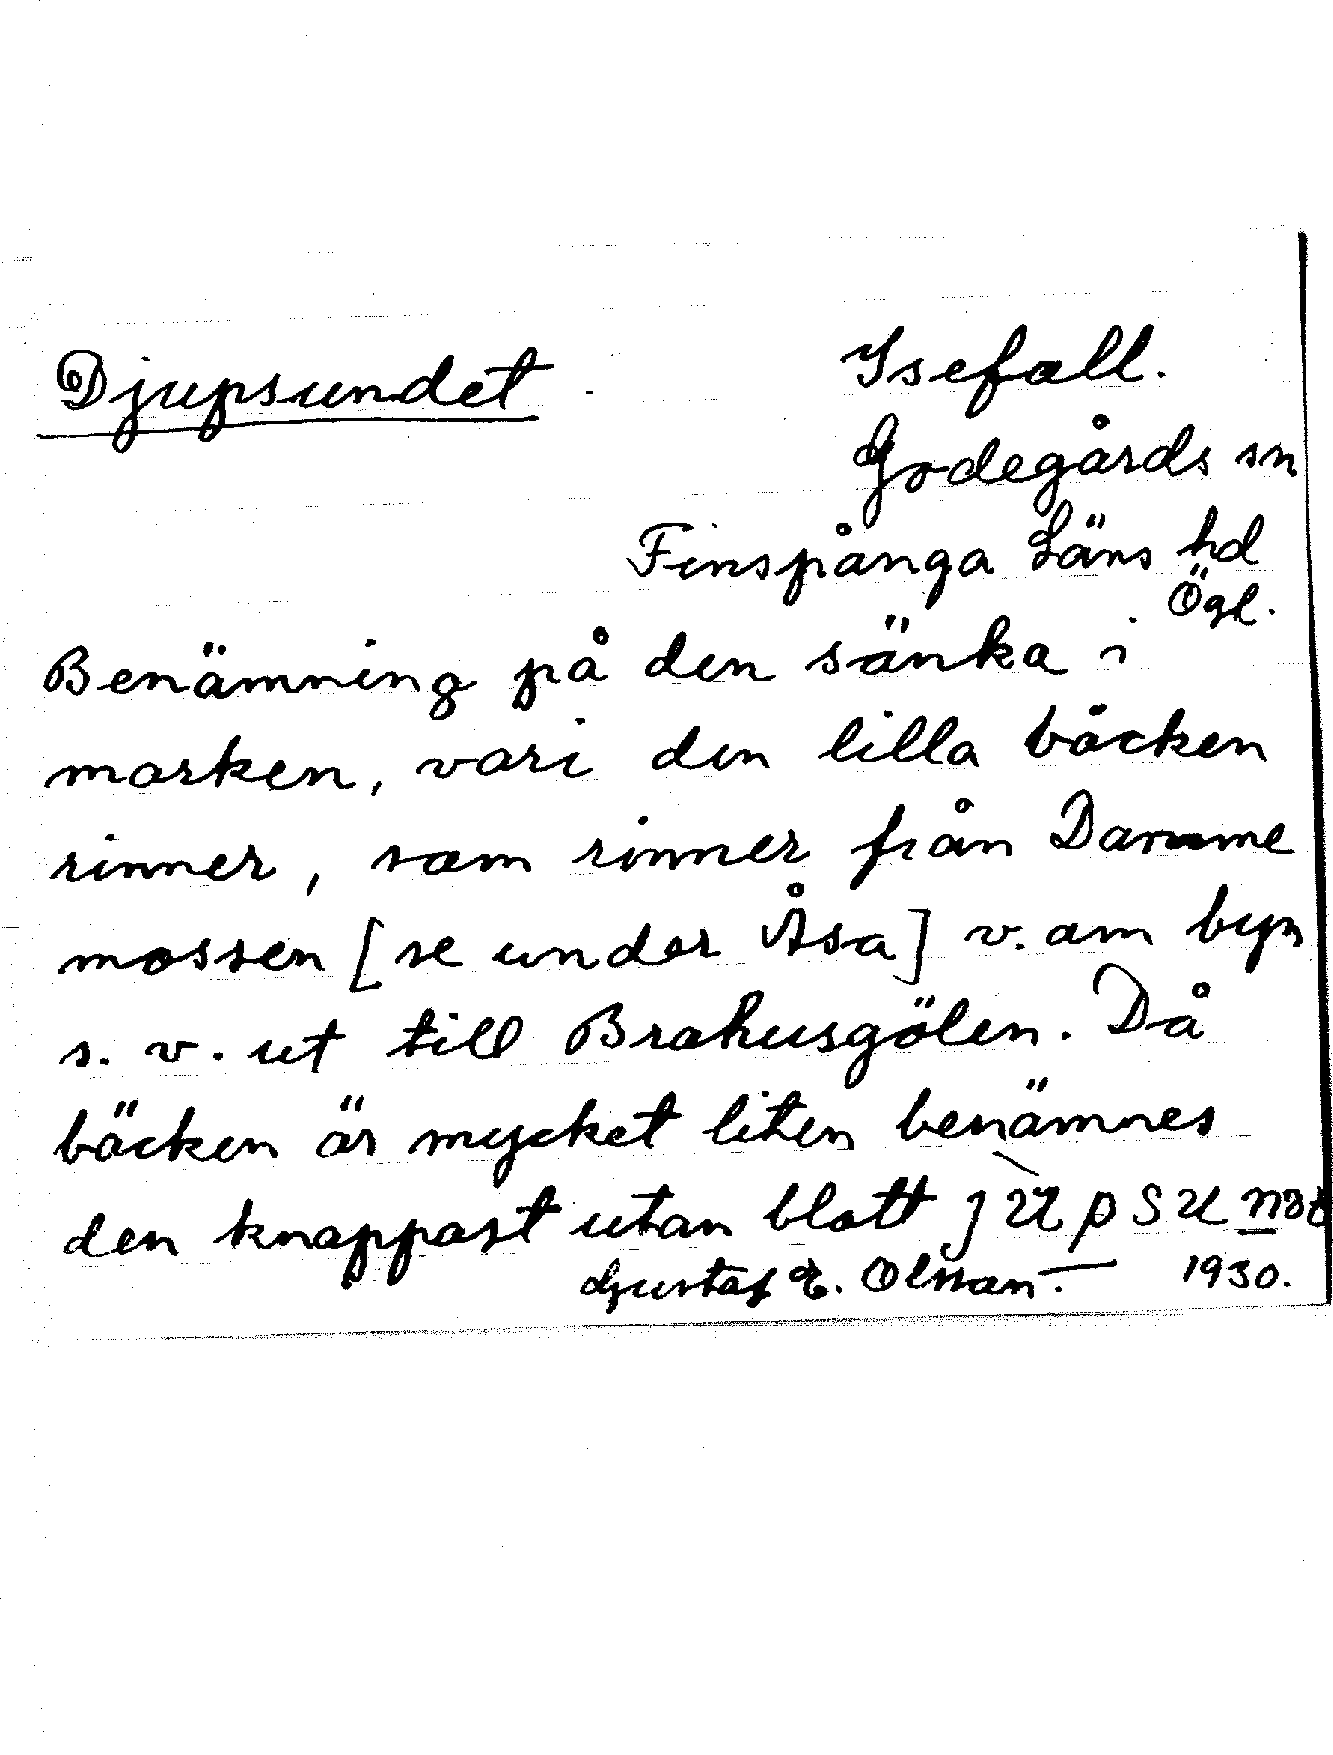 Djupsundet
Isefall.
Godegårds sn
Finspånga Läns hd
Ögl.
Benämning på den sänka i
marken, vari den lilla bäcken
rinner, som rinner från Damme
mossen [se under Åsa] v. om byn
s. v. ut till Brahusgölen. Då
bäcken är mycket liten benämnes
den knappast utan blott
Gustaf E. Olsson. 1930.